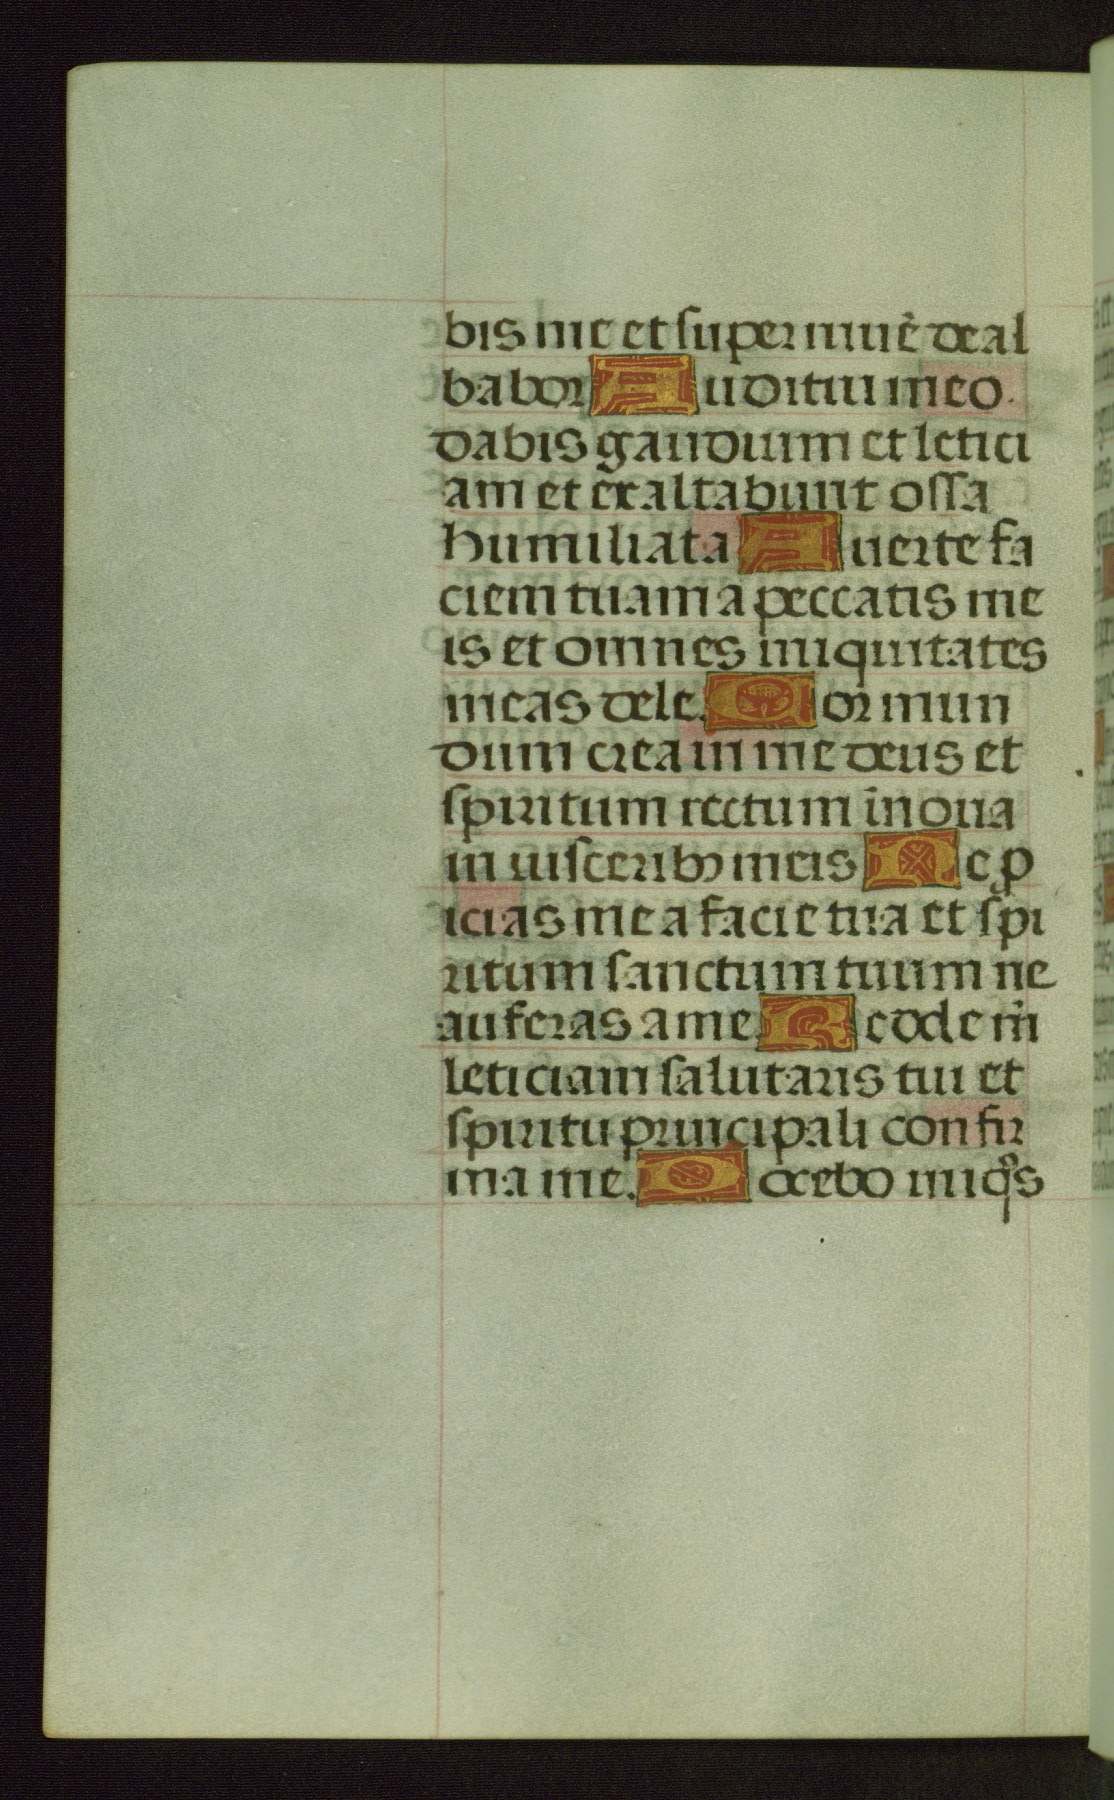 bis me et super niuē deal
babor Auditui meo
dabis gaudium et letici
am et exaltabunt ossa
humiliata Auerte fa
ciem tuam a peccatis me
is et omnes iniquitates
meas dele. Cor mun
dum crea in me deus et
spiritum rectum inoua
in uisceribꝫ meis Ne ꝓ
icias me a facie tua et spi
ritum sanctum tuum ne
auferas a me. Redde m̄
leticiam salutaris tui et
spiritu principali confir
ma me. Docebo iniqͦs